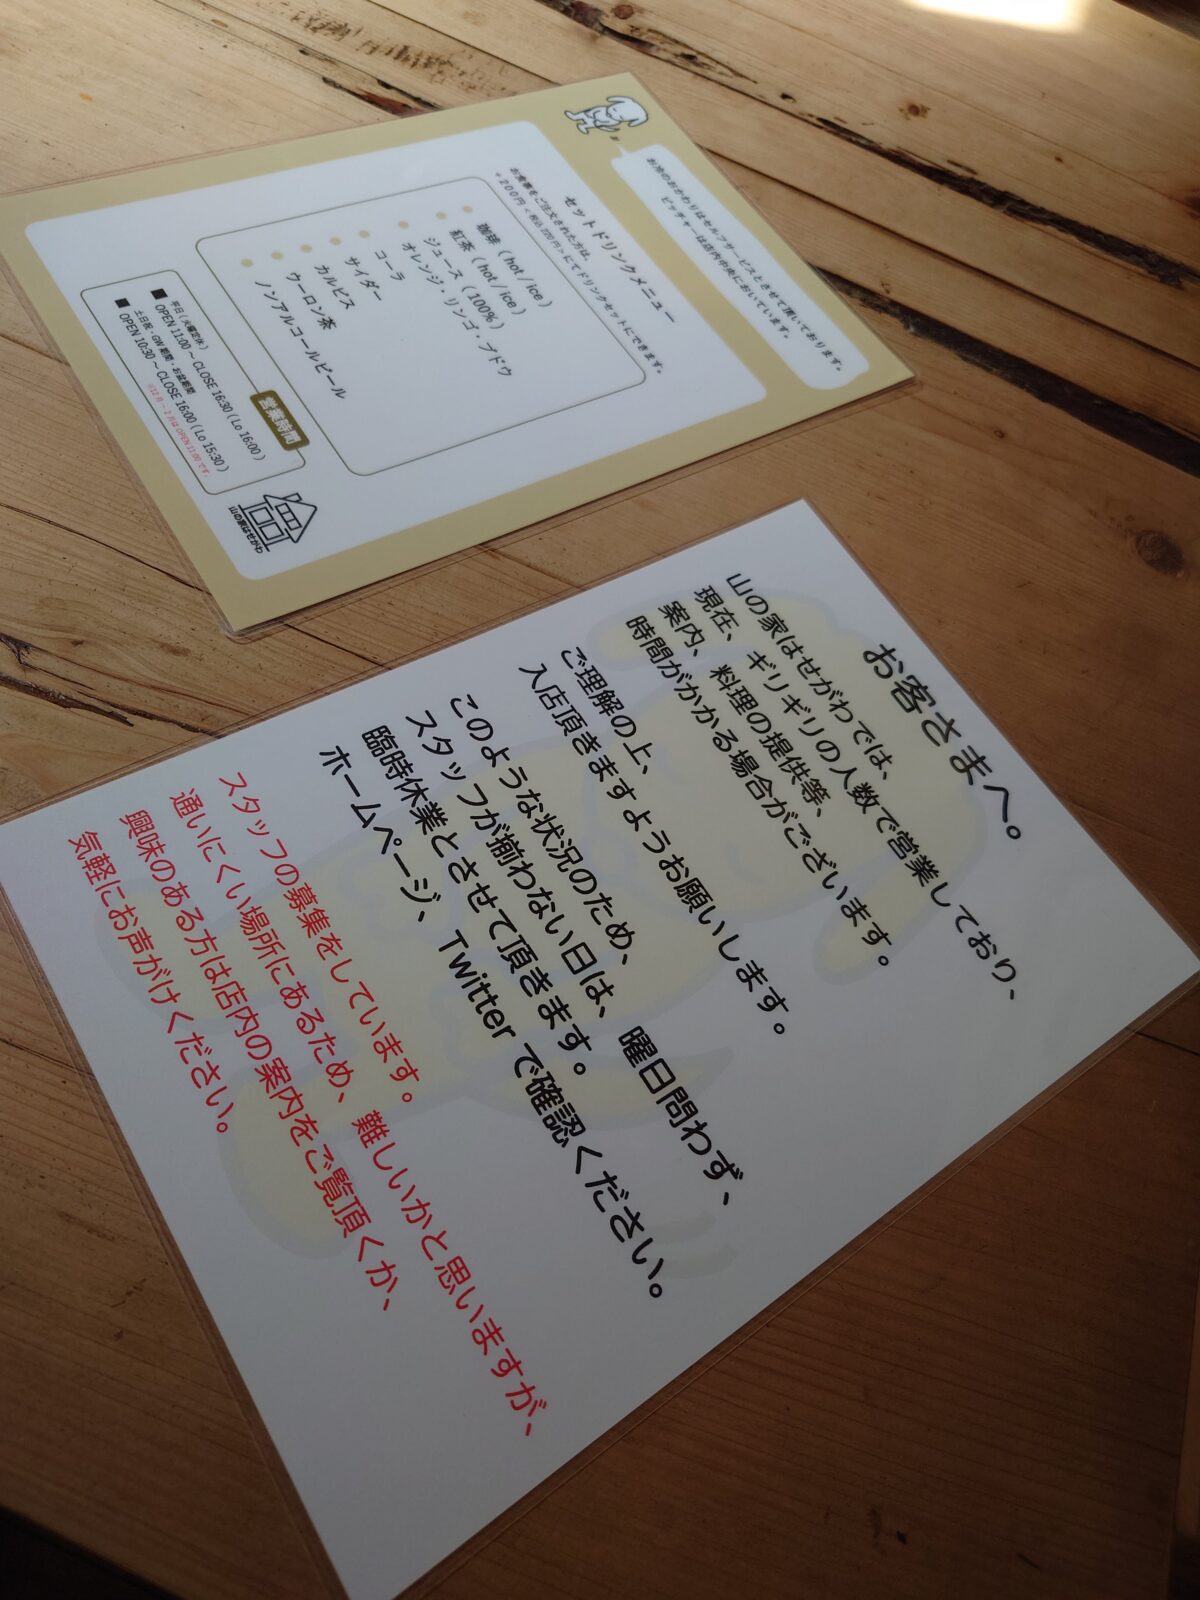 お冷のおかわりはセルフサービスとさせて頂いております。
ピッチャーは店内中央においています。
セットドリンクメニュー
お食事をご注文された方は、
+200円<税込220円>にてドリンクセットにできます。
珈琲(hot/ice)
紅茶(hot/ice)
ジュース(100%)
オレンジ・リンゴ・ブドウ
コーラ
サイダー
カルピス
ウーロン茶
ノンアルコールビール
営業時間
■ 平日(火曜定休)
OPEN 11:00~CLOSE 16:30(Lo 16:00)
■ 土日祝・GW期間・お盆期間
OPEN 10:30~CLOSE 16:00(Lo 15:30)
※12月~2月はOPEN 11:00です。
山の家はせがわ
お客さまへ。
山の家はせがわでは、
現在、ギリギリの人数で営業しており、
案内、料理の提供等、
時間がかかる場合がございます。
ご理解の上、
入店頂きますようお願いします。
このような状況のため、
スタッフが揃わない日は、曜日問わず、
臨時休業とさせて頂きます。
ホームページ、Twitterで確認ください。
スタッフの募集をしています。
通いにくい場所にあるため、難しいかと思いますが、
興味のある方は店内の案内をご覧頂くか、
気軽にお声がけください。